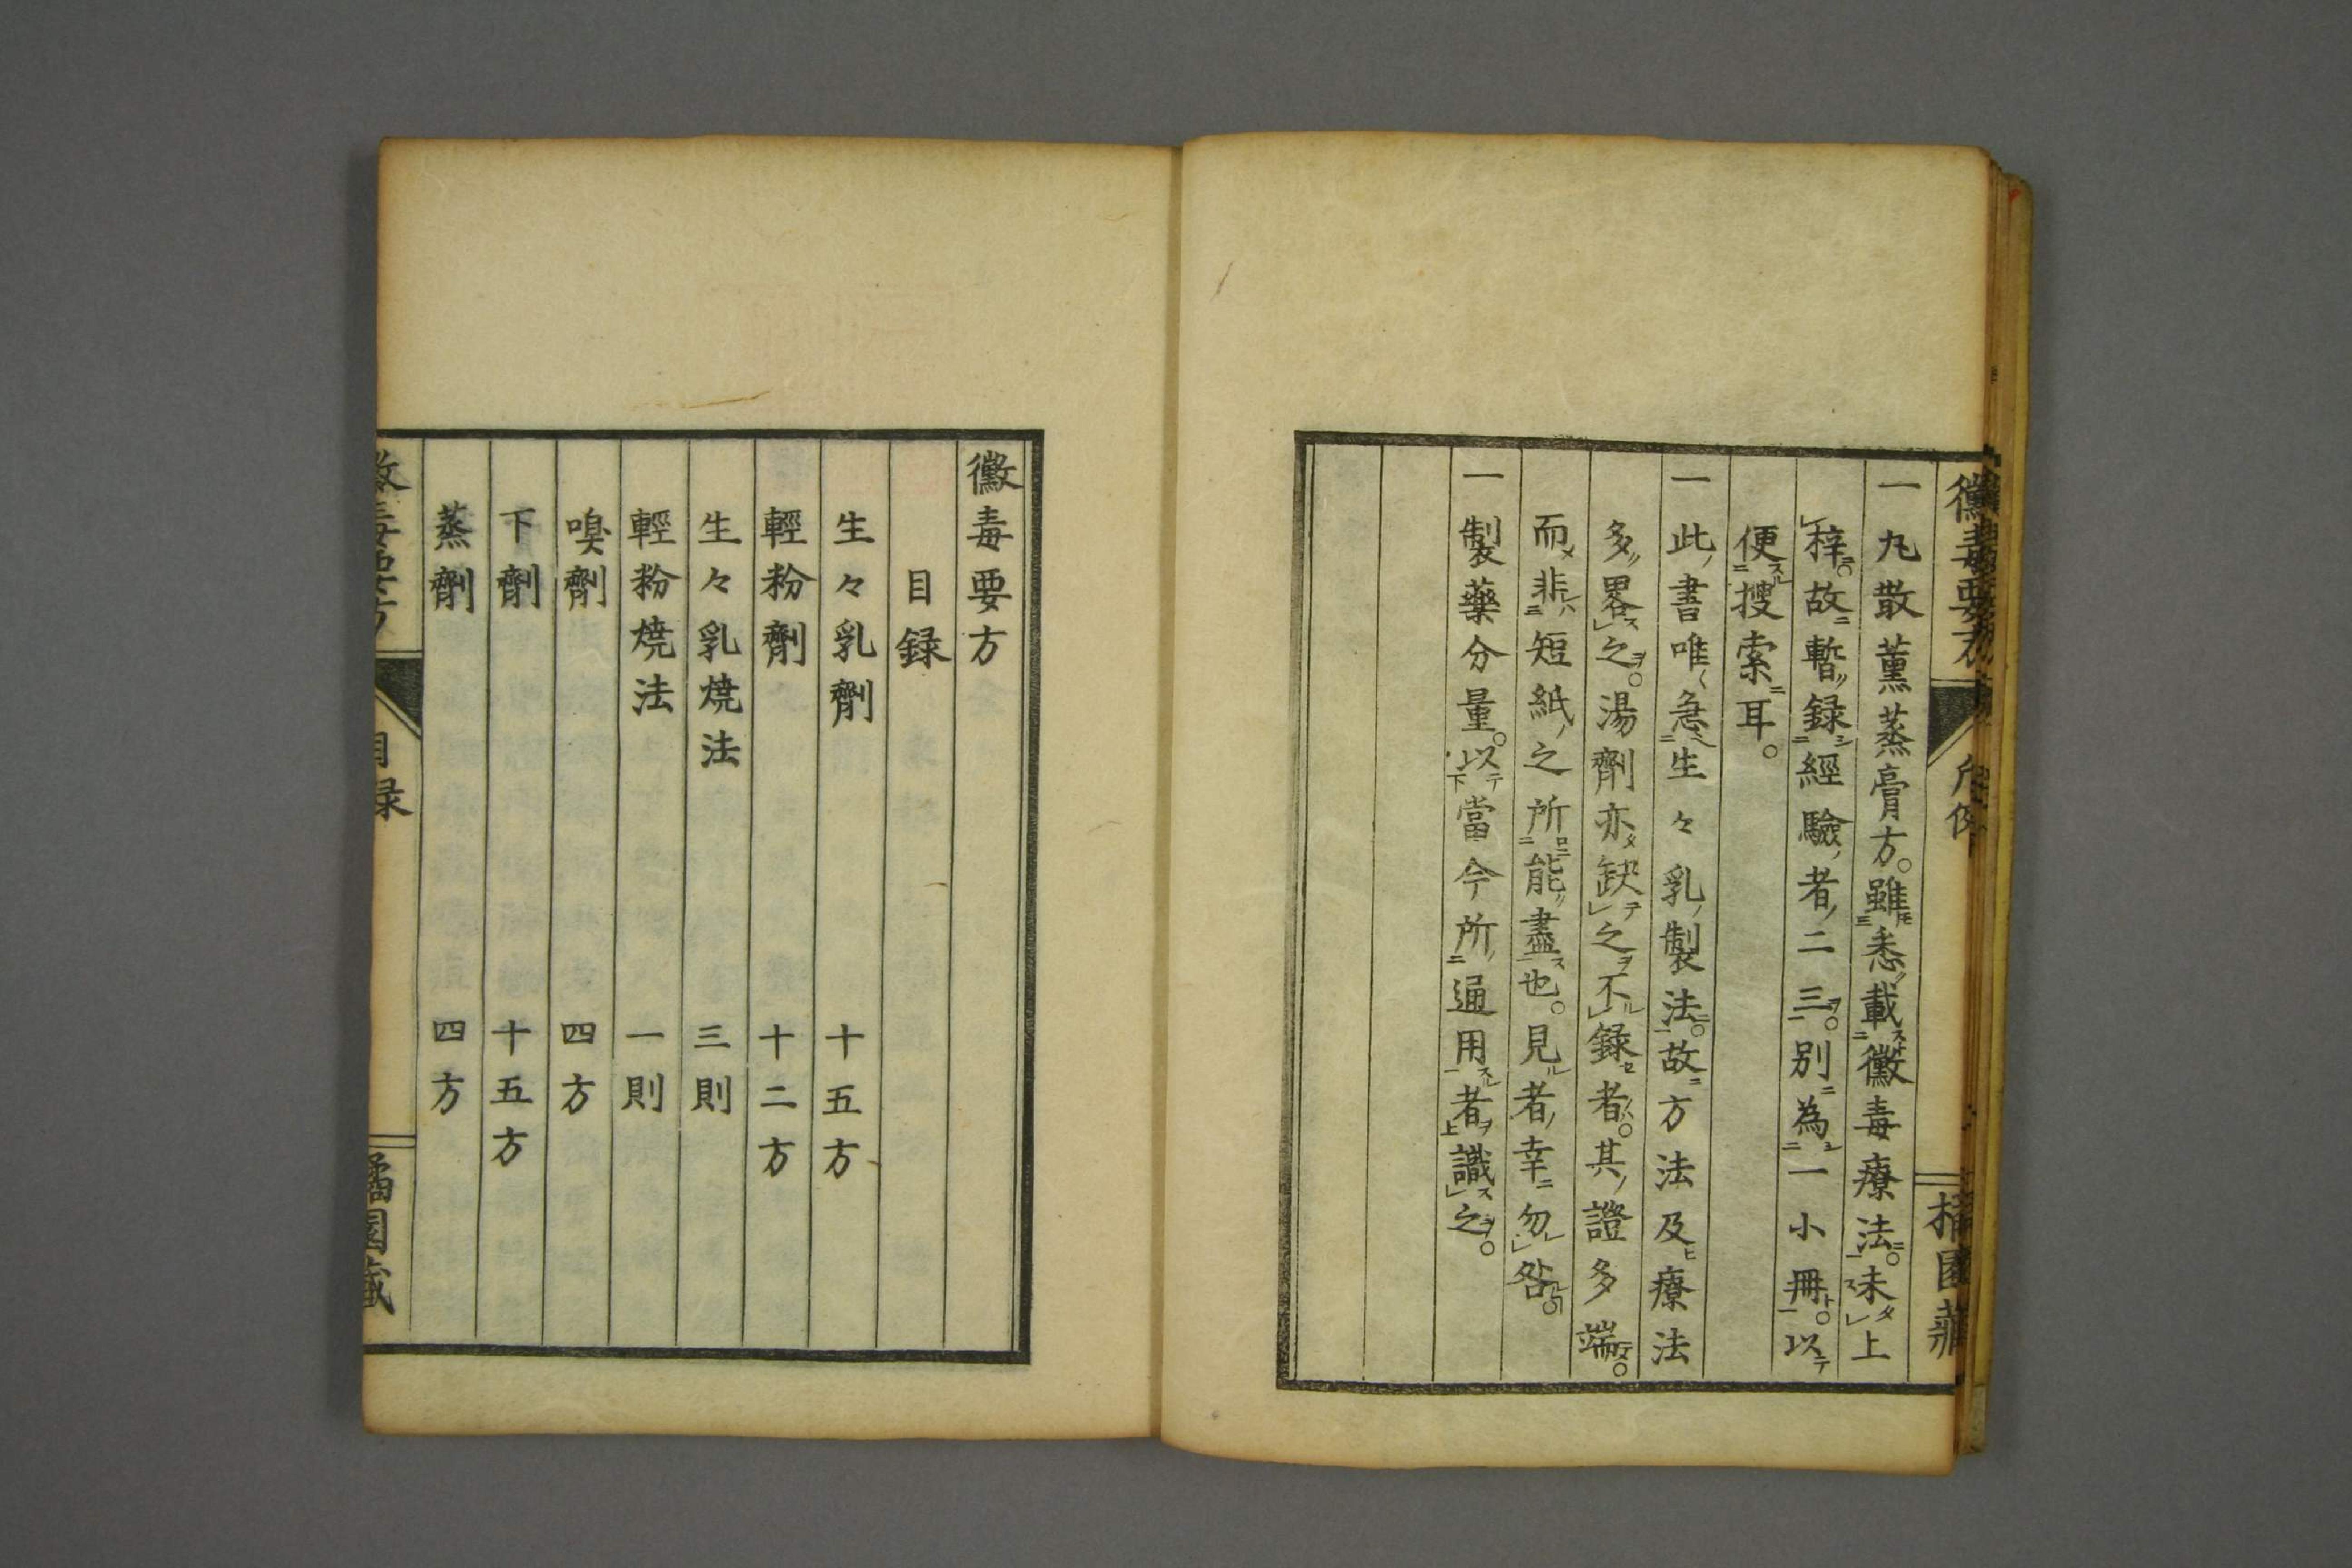 一丸散薫蒸膏方。雖悉載黴毒療法。未上
梓。故暫録經驗者二三。別為一小冊。以
便搜索耳。
一此書唯急生々乳製法。故方法及療法
多畧之。湯劑亦缺之不録者。其證多端。
而非短紙之所能盡也。見者幸勿咎。
一製藥分量。以當今所通用者識之。
黴毒要方
目録
生々乳劑 十五方
輕粉劑 十二方
生々乳焼法 三則
輕粉焼法 一則
嗅劑 四方
下劑 十五方
蒸劑 四方
目録
橘園藏